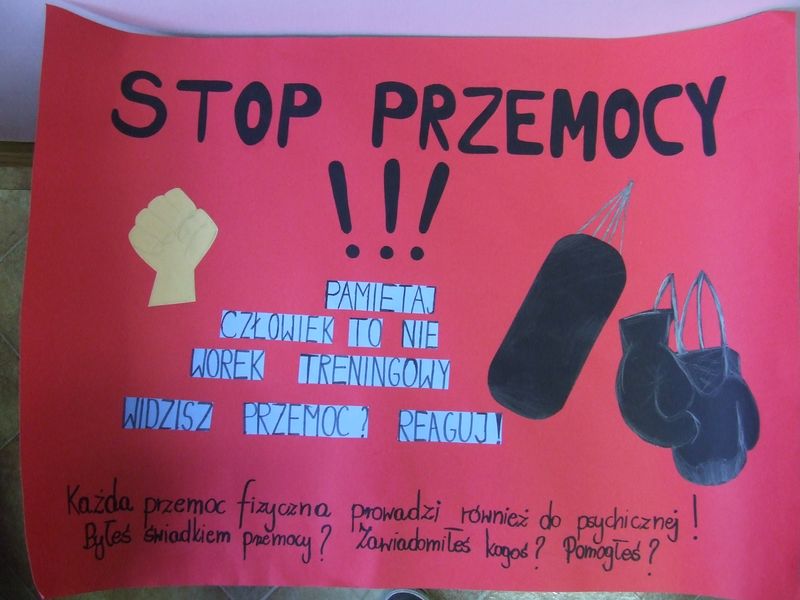 STOP PRZEMOCY
!!!
PAMIETAJ
CZŁOWIEK TO NIE
WOREK TRENINGOWY
WIDZISZ PRZEMOC? REAGUJ!
Każda przemoc fizyczna prowadzi również do psychicznej!
Byłeś świadkiem przemocy? Zawiadomiłeś kogoś? Pomogłeś?